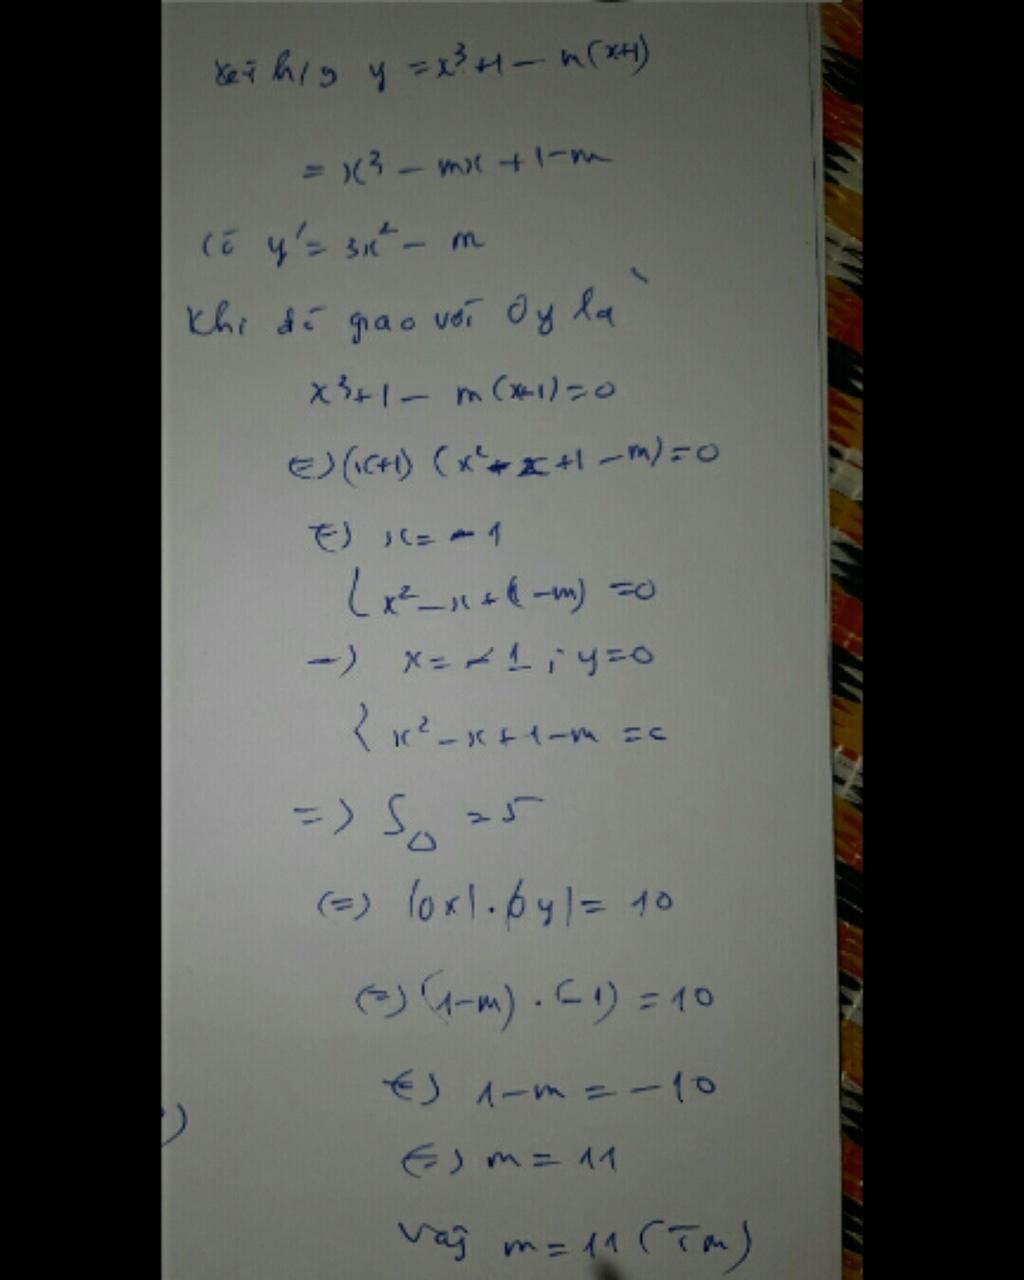 Xét h/s y = x³+1 - m(x+1)
= x³ - mx + 1-m
có y' = 3x² - m
Khi đó giao với Oy là
x³+1 - m(x+1)=0
⇔ (x+1) (x²-x+1-m)=0
⇔ x = -1
{ x²-x+(1-m) =0
→ x = -1 ; y=0
{ x²-x+1-m =0
=> S△ = 5
⇔ |ox|.|oy| = 10
⇔ (1-m) . (-1) = 10
⇔ 1-m = -10
⇔ m = 11
Vậy m = 11 (Tm)
)